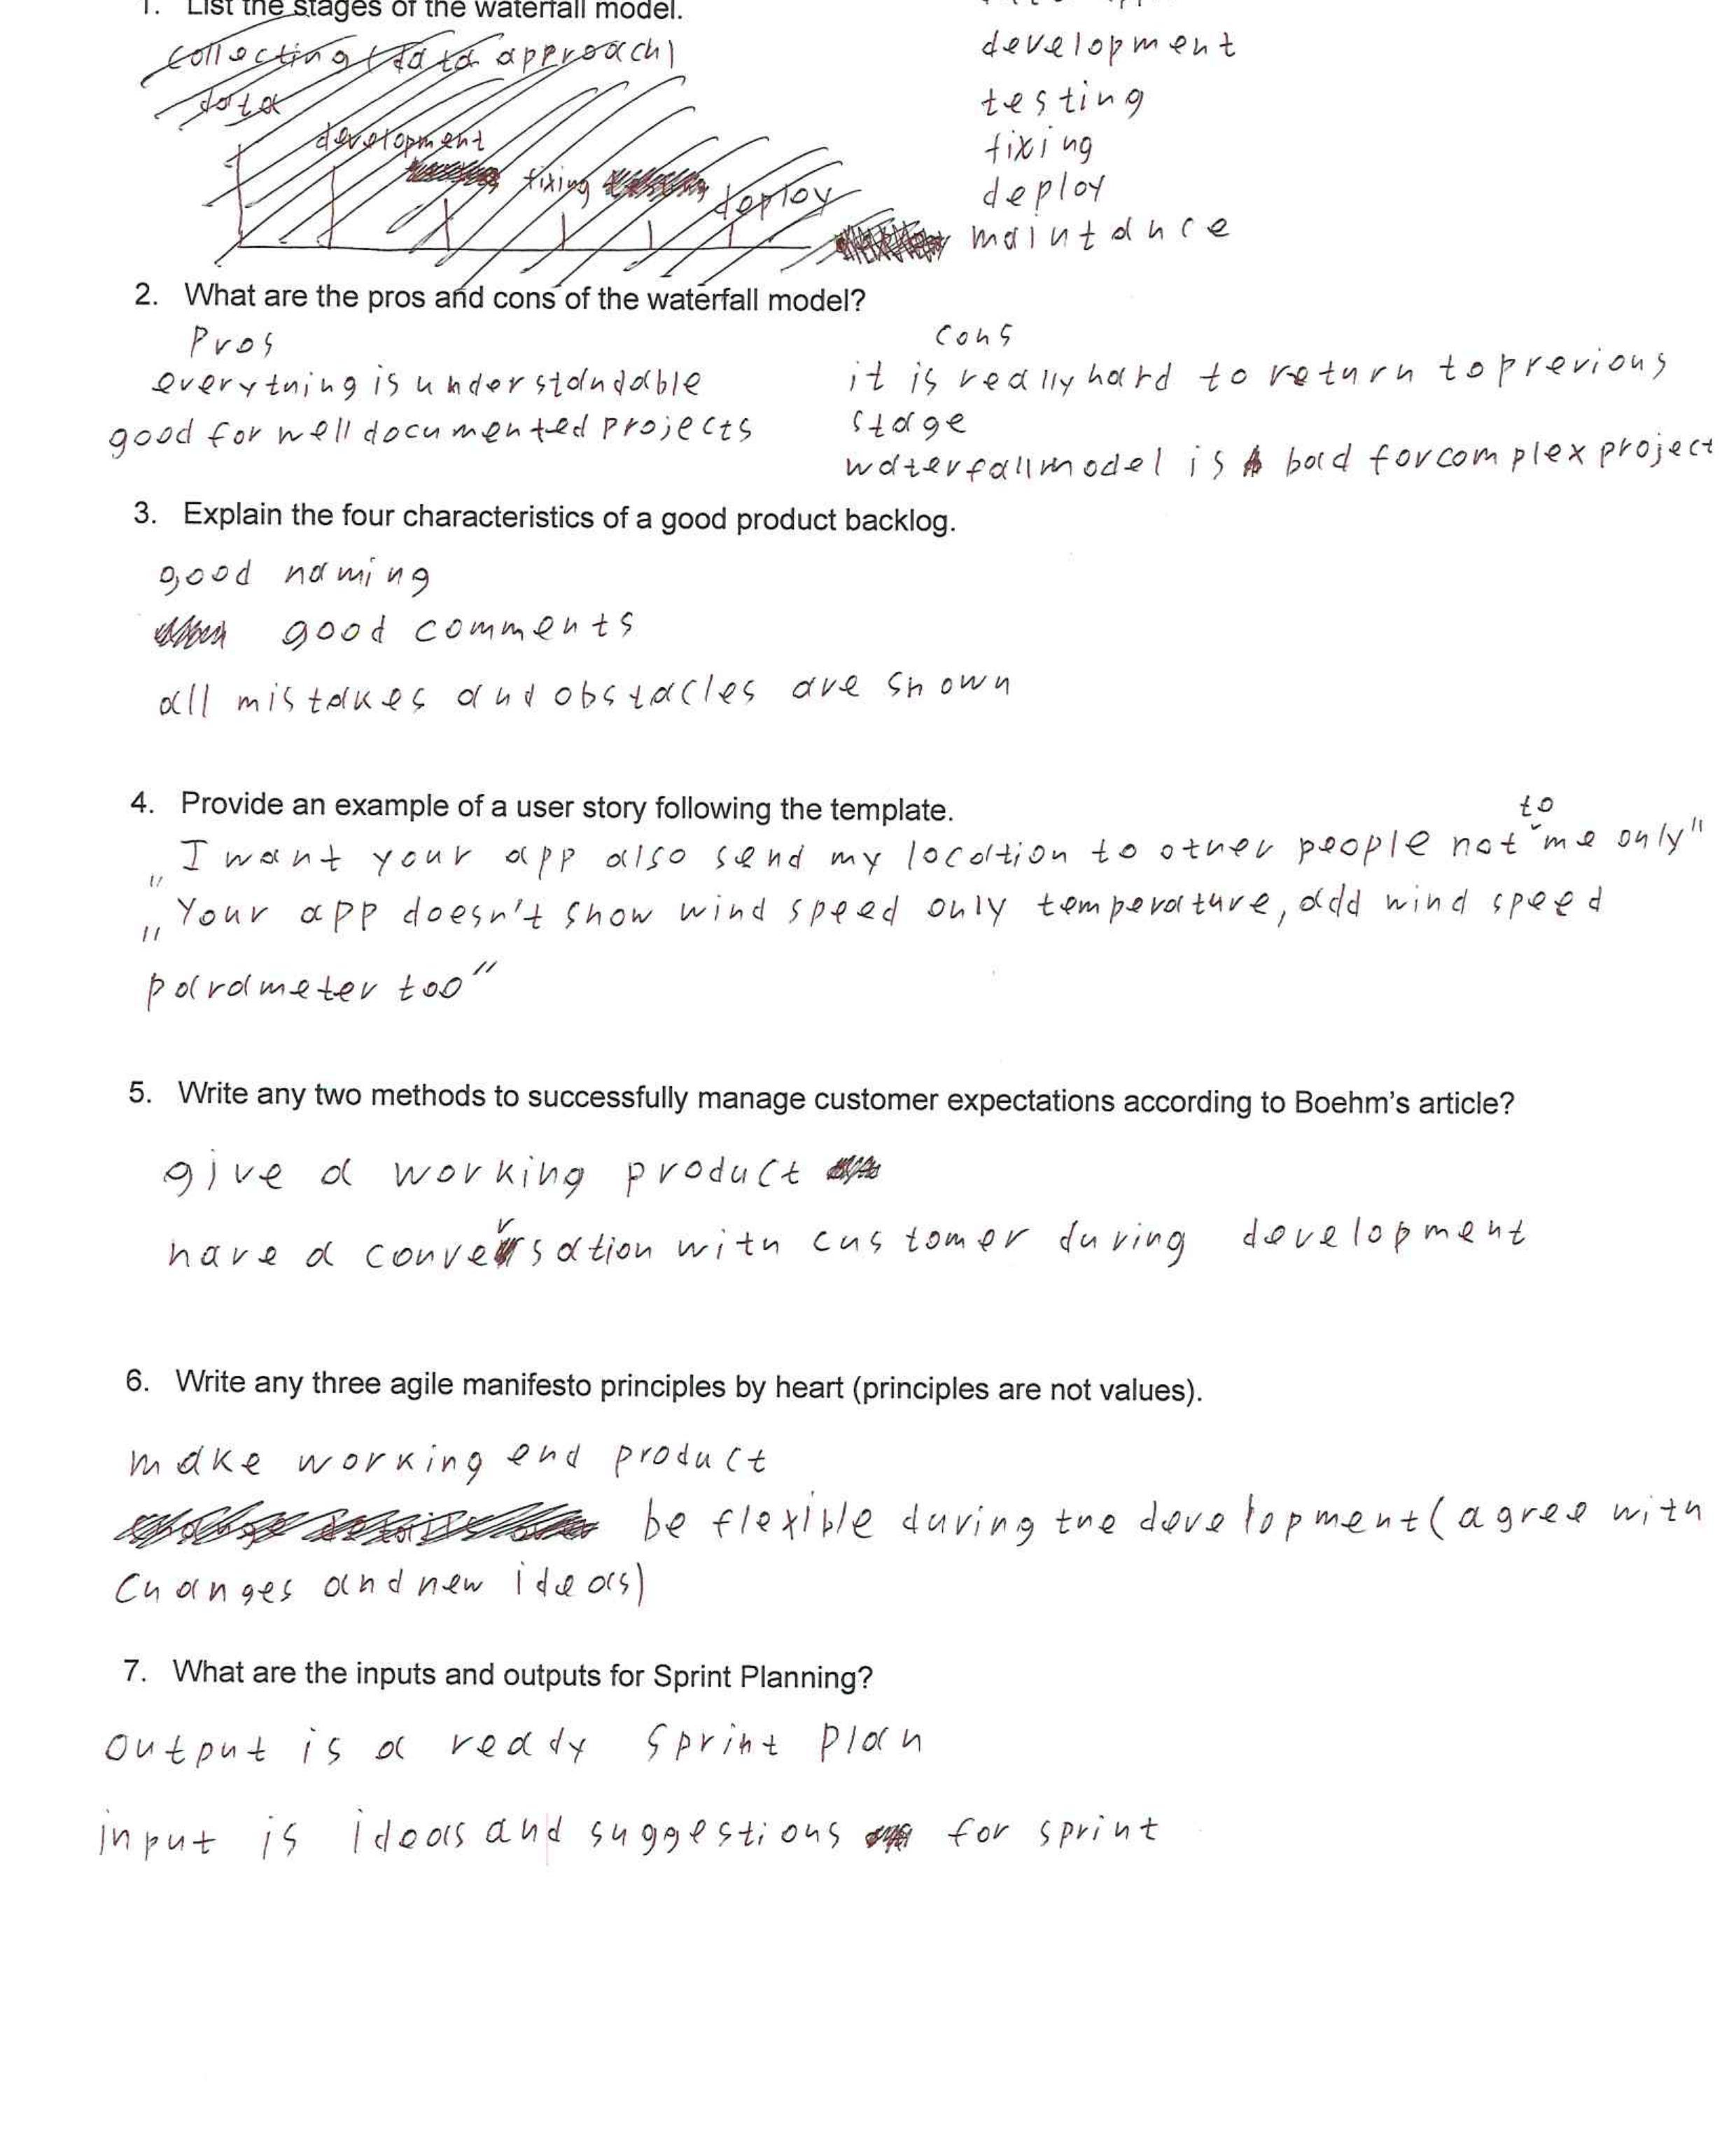 1. List the stages of the waterfall model.
collecting (data approach)
data
development
fixing
deploy
development
testing
fixing
deploy
maintance
2. What are the pros and cons of the waterfall model?
Pros
everything is understandable
good for well documented projects
cons
it is really hard to return to previous
stage
waterfall model is bad for complex project
3. Explain the four characteristics of a good product backlog.
good naming
good comments
all mistakes and obstacles are shown
4. Provide an example of a user story following the template.
„I want your app also send my location to other people not to me only"
„Your app doesn't show wind speed only temperature, add wind speed
parameter too"
5. Write any two methods to successfully manage customer expectations according to Boehm's article?
give a working product
have a conversation with customer during development
6. Write any three agile manifesto principles by heart (principles are not values).
make working end product
be flexible during the development (agree with
changes and new ideas)
7. What are the inputs and outputs for Sprint Planning?
output is a ready sprint plan
input is ideas and suggestions for sprint